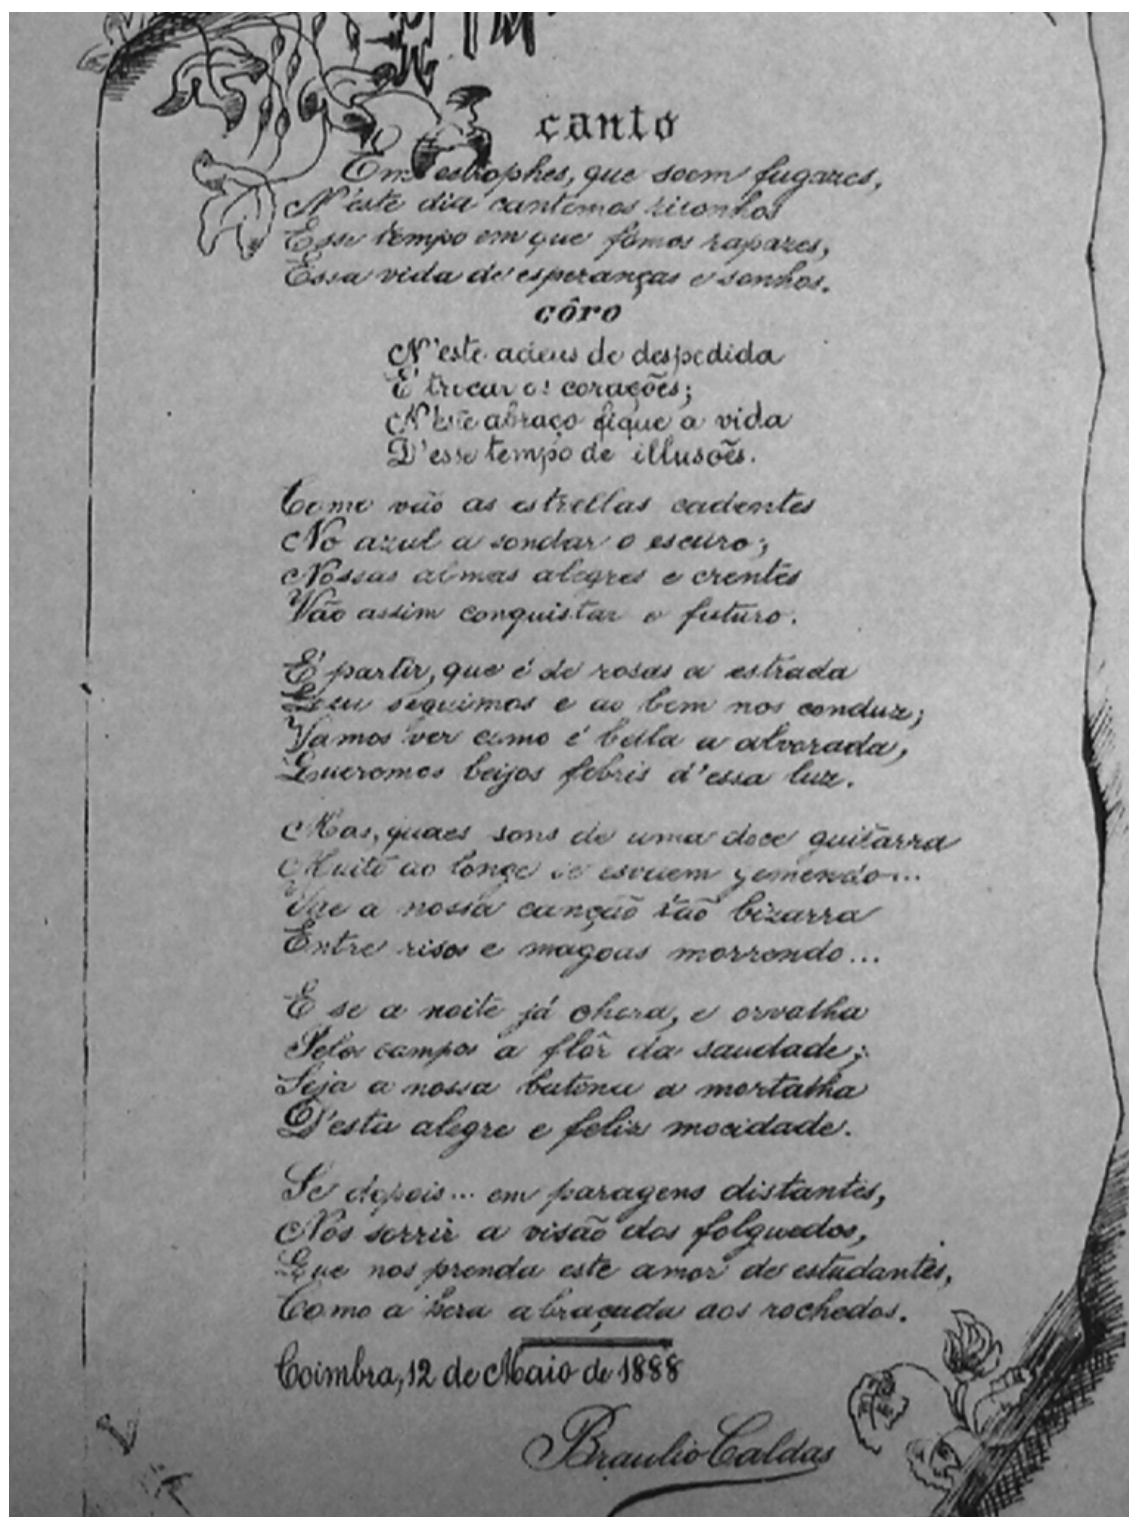 canto
Em estrophes, que soem fugazes,
N'este dia cantemos risonhos
Esse tempo em que fômos rapazes,
Essa vida de esperanças e sonhos.
côro
N'este adeus de despedida
É trocar os corações;
N'este abraço fique a vida
D'esse tempo de illusões.
Como vão as estrellas cadentes
No azul a sondar o escuro;
Nossas almas alegres e crentes
Vão assim conquistar o futuro.
É partir, que é de rosas a estrada
Que seguimos e ao bem nos conduz;
Vamos ver como é bella a alvorada,
Queremos beijos febris d'essa luz.
Mas, quaes sons de uma doce guitarra
Muito ao longe se esvaem gemendo...
Vae a nossa canção tão bizarra
Entre risos e magoas morrendo...
E se a noite já chora, e orvalha
Pelos campos a flôr da saudade;
Seja a nossa batina a mortalha
D'esta alegre e feliz mocidade.
Se depois... em paragens distantes,
Nos sorrir a visão dos folguedos,
Que nos prenda este amor de estudantes,
Como a hera abraçada aos rochedos.
Coimbra, 12 de Maio de 1888
Braulio Caldas